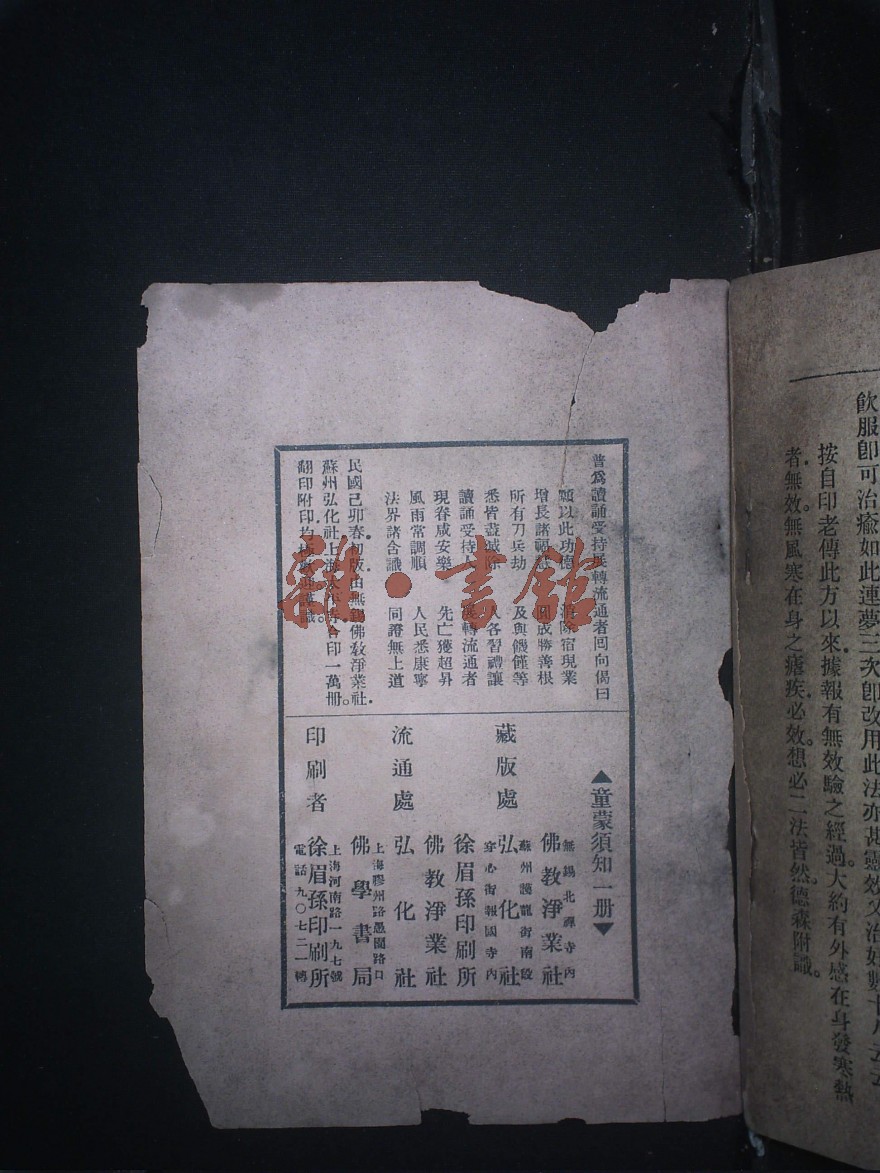 飲服卽可治癒如此連夢三次卽改用此法亦甚靈效又治好數十人云云
按自印老傳此方以來據報有無效驗之經過大約有外感在身發寒熱
者無效無風寒在身之瘧疾必效想必二法皆然德森附識
普爲讀誦受持展轉流通者回向偈曰
願以此功德 消除宿現業
增長諸福慧 圓成勝善根
所有刀兵劫 及與饑饉等
悉皆盡滅除 人各習禮讓
讀誦受持人 展轉流通者
現眷咸安樂 先亡獲超昇
風雨常調順 人民悉康寧
法界諸含識 同證無上道
民國己卯春初版由無錫佛敎淨業社
蘇州弘化社上海太平寺合印一萬冊
翻印附印均
▲童蒙須知一册▼
藏版處
無錫北禪寺內
佛敎淨業社
蘇州護龍街南段
弘化社
穿心街報國寺內
徐眉孫印刷所
流通處
佛敎淨業社
弘化社
上海膠州路愚園路口
佛學書局
印刷者
上海河南路一九七號
徐眉孫印刷所
電話九〇七二一轉
雜·書館